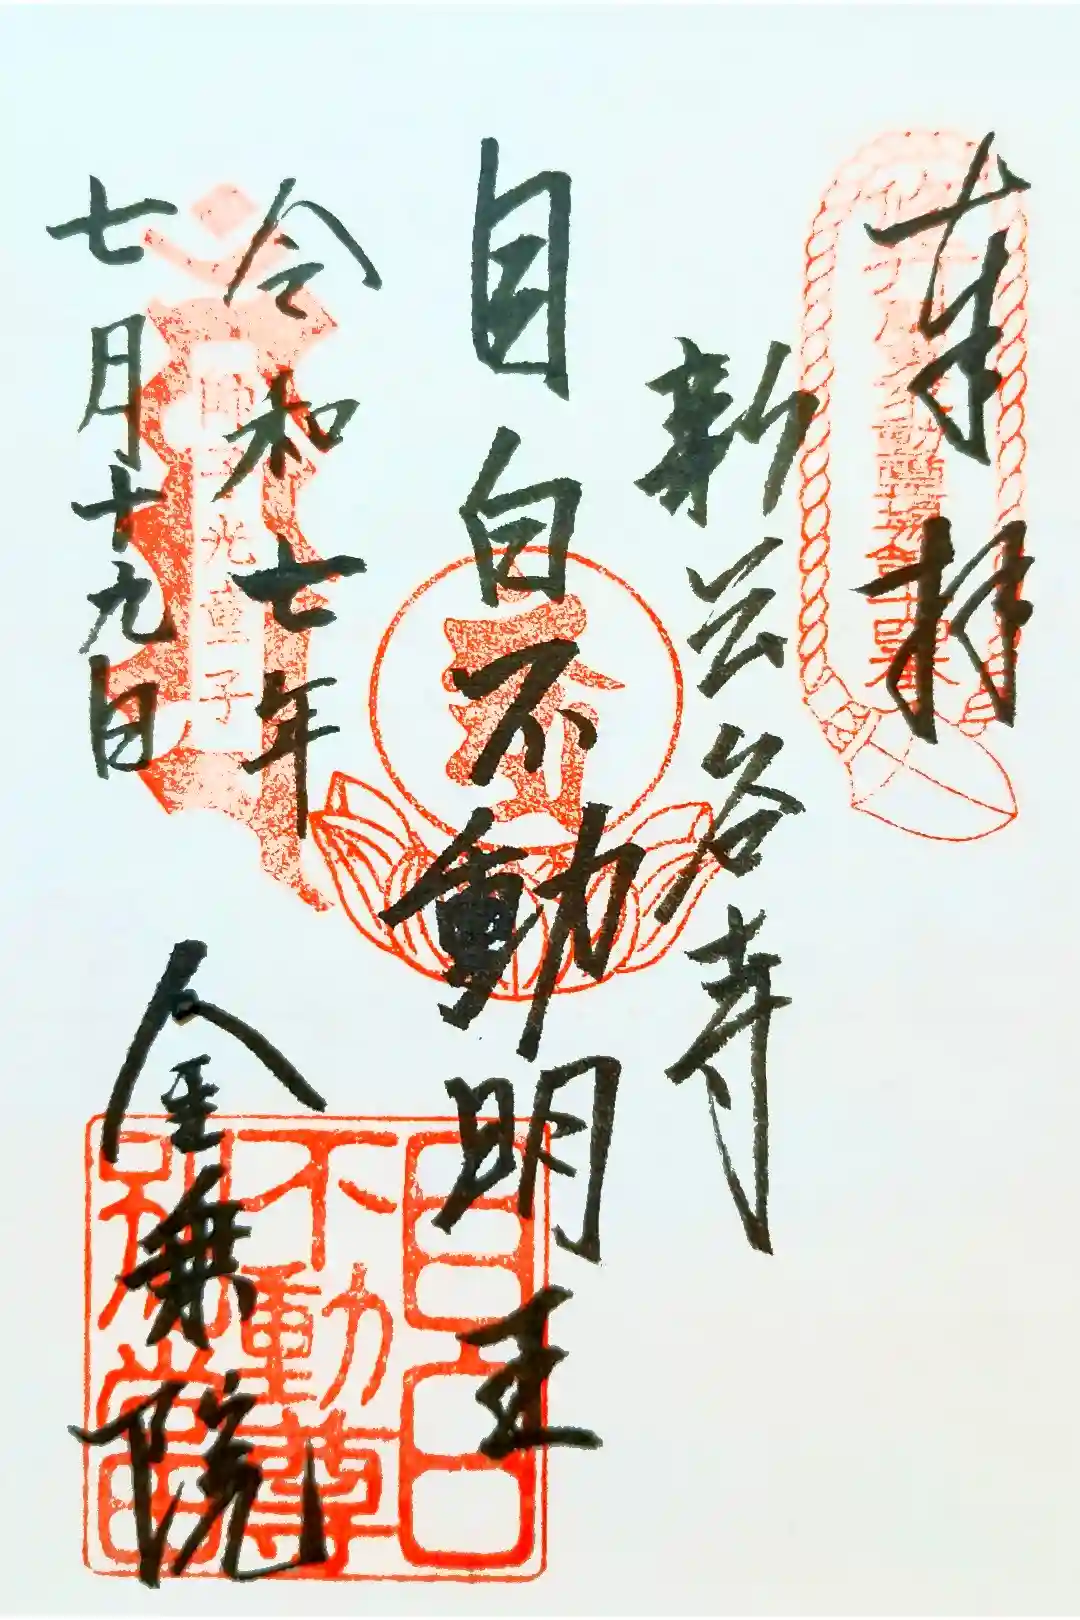 奉拝
新長谷寺
目白不動明王
令和七年
七月十九日
金乗院
目白
不動尊
別當
光童子